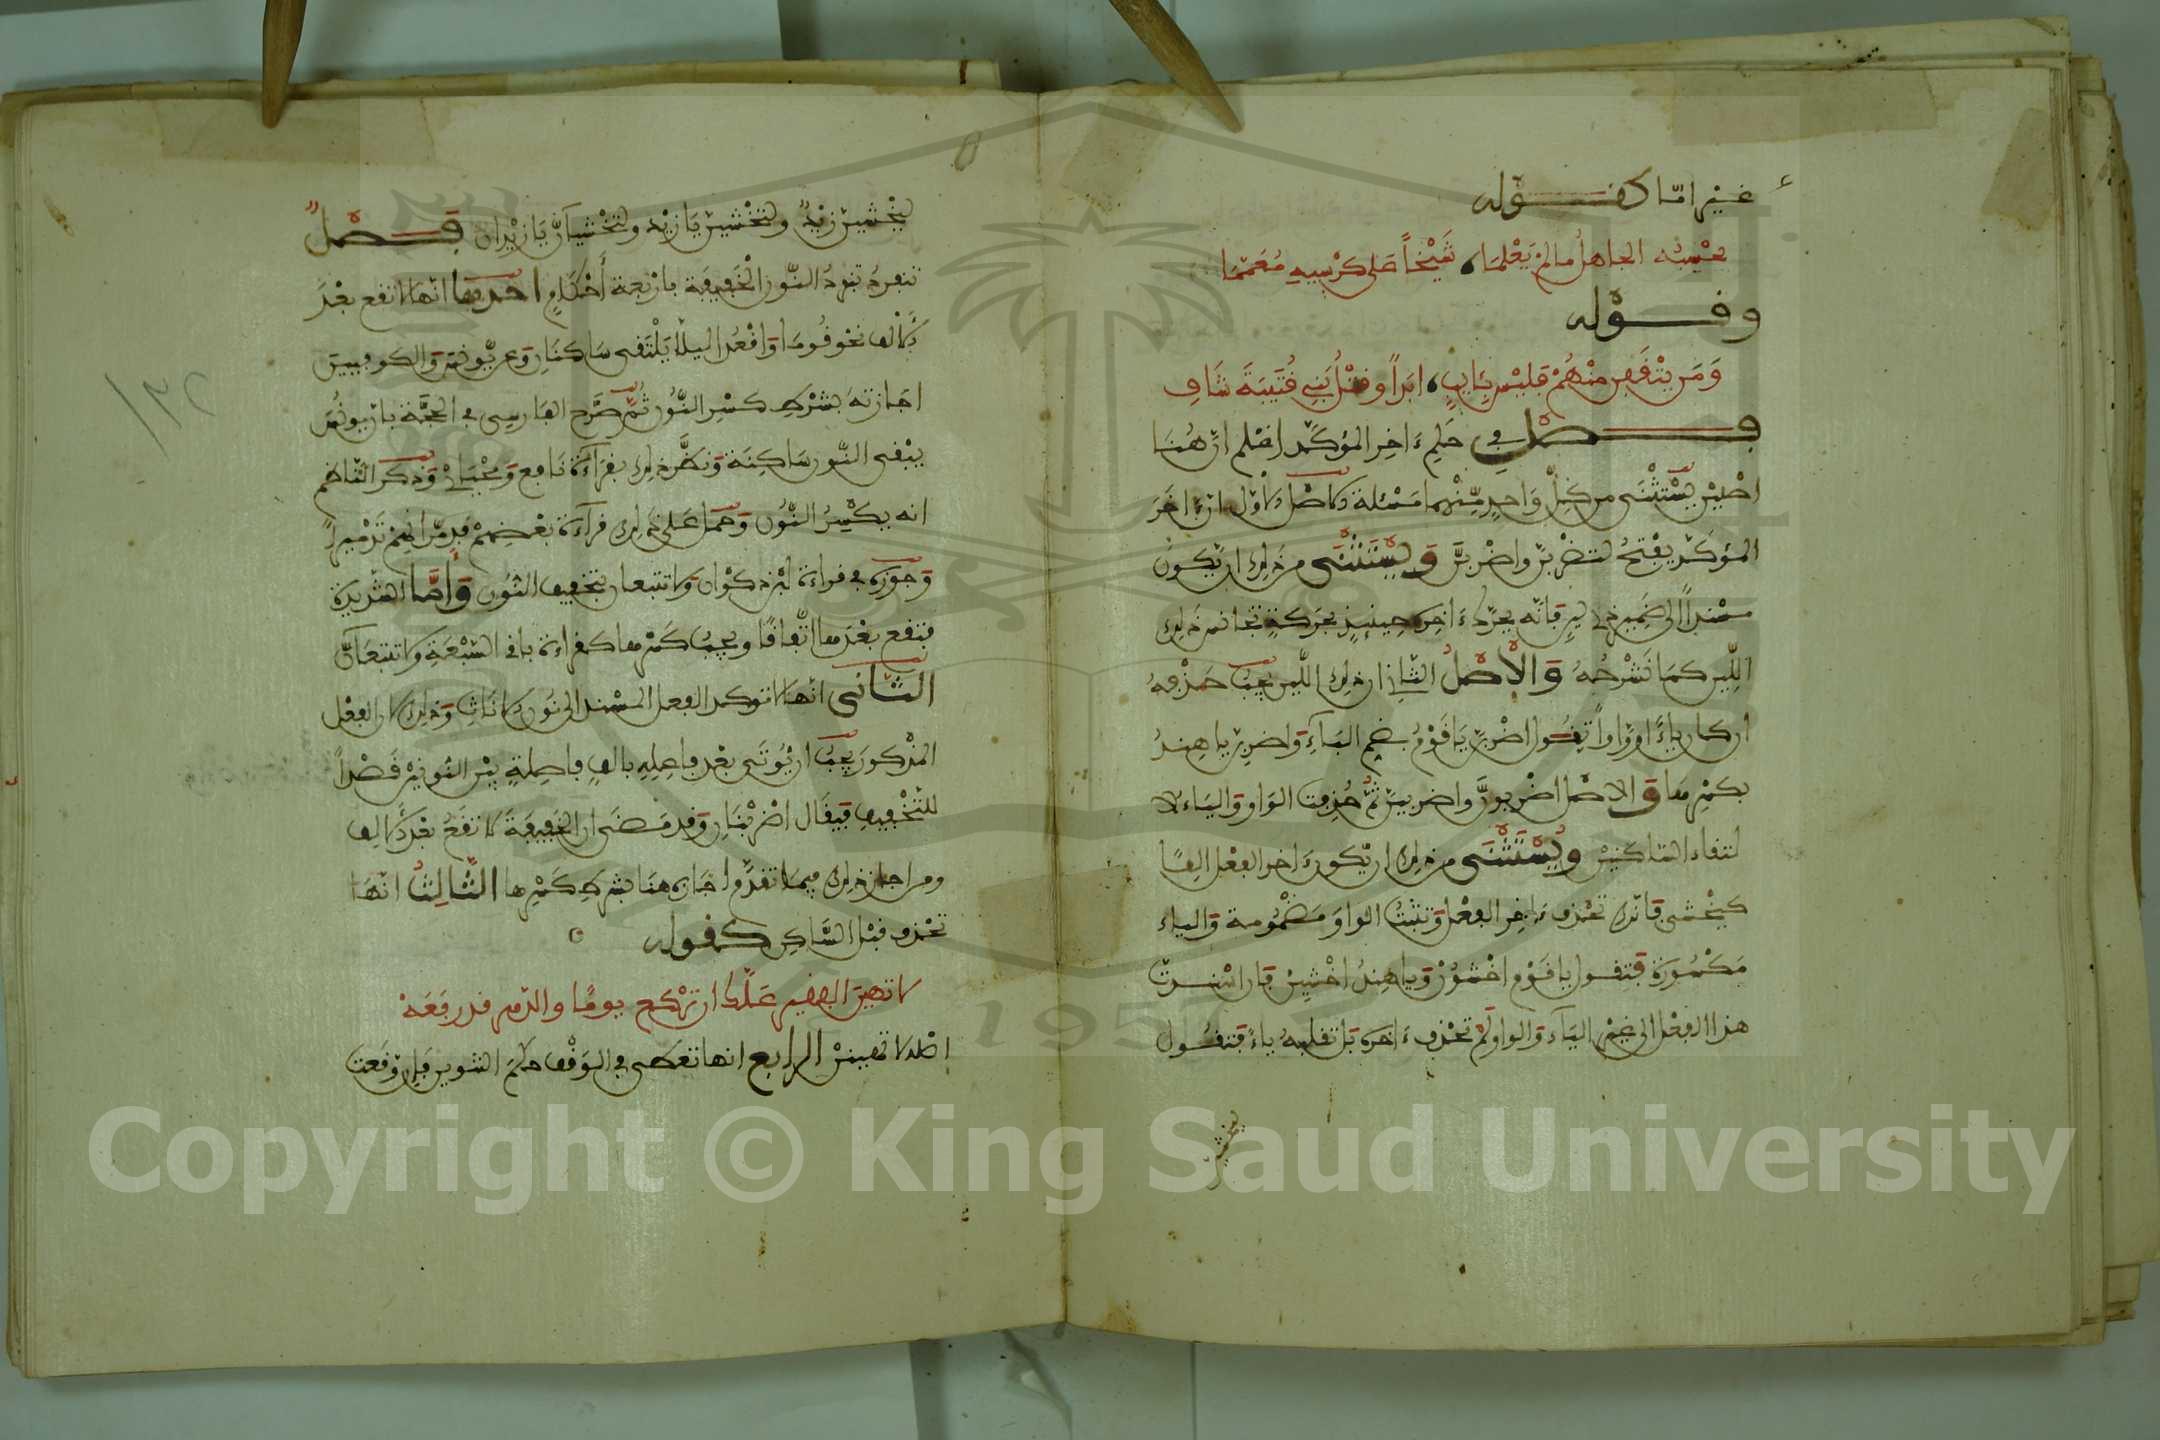 غير امّا كقوله
يحسبه الجاهل ما لم يعلما، شيخاً على كرسيه معمّما
وقوله
ومن يثقفن منهم فليس بئايب، ابداً وقتل بني قتيبة شاف
فصل في حكم ءاخر المؤكّد اعلم ان هنا
اصلين يستثنى من كل واحد منهما مسئلة الاصل الاول ان ءاخر
المؤكّد يفتح لتضربن واضربن ويستثنى من ذلك ان يكون
مسنداً الى ضمير ذي لين فانه يحرّك ءاخره حينئذ بحركة تجانس ذلك
اللين كما نشرحه والاصل الثاني ان ذلك اللين يجب حذفه
ان كان ياءً او واواً تقول اضربن يا قوم بضم الباء واضربن يا هند
بكسرها والاصل اضربون واضربين ثم حذفت الواو والياء لا
لتقاء الساكنين ويستثنى من ذلك ان يكون ءاخر الفعل الفاً
كيخشى فانك تحذف ءاخر الفعل وتثبت الواو مضمومة والياء
مكسورة فتقول يا قوم اخشون ويا هند اخشين فان اسندت
هذا الفعل الى غير الياء والواو لم تحذف ءاخره بل تقلبه ياءً فتقول
ليخشين زيد ولتخشين يا زيد ولتخشيان يا زيدان فصل
تنفرد النون الخفيفة باربعة أحكام احدها انها لا تقع بعد
الالف نحو قوما واقعدا ليلا يلتقي ساكنان وعن يونس والكوفيين
اجازته بشرط كسر النون ثم صرّح الفارسي في الحجة بان يونس
يبقى النون ساكنة ونظّر ذلك بقراءة نافع ومحياي وذكر الناظم
انه يكسر النون وحمل على ذلك قراءة بعضهم فدمرانهم تدميراً
وجوزه في قراءة ابن ذكوان ولا تتبعان بتخفيف النون وامّا الشديدة
فتقع بعدها اتفاقا ويجب كسرها كقراءة باقي السبعة ولا تتبعآنّ
الثاني انها لا توكد الفعل المسند الى نون الاناث وذلك لان الفعل
المذكور يجب ان يؤتى بعد فاعله بالف فاصلة بين النونين قصداً
للتخفيف فيقال اضربنان وقد مضى ان الخفيفة لا تقع بعد الالف
ومن اجاز ذلك فيما تقدّم اجازه هنا بشرط كسرها الثالث انها
تحذف قبل الساكن كقوله
لا تهين الفقير علّك ان تركع يومًا والدهر قد رفعه
اصله لا تهينن الرابع انها تعطى في الوقف حكم التنوين فان وقعت
ليخشين
١٣٢
Copyright © King Saud University
1957